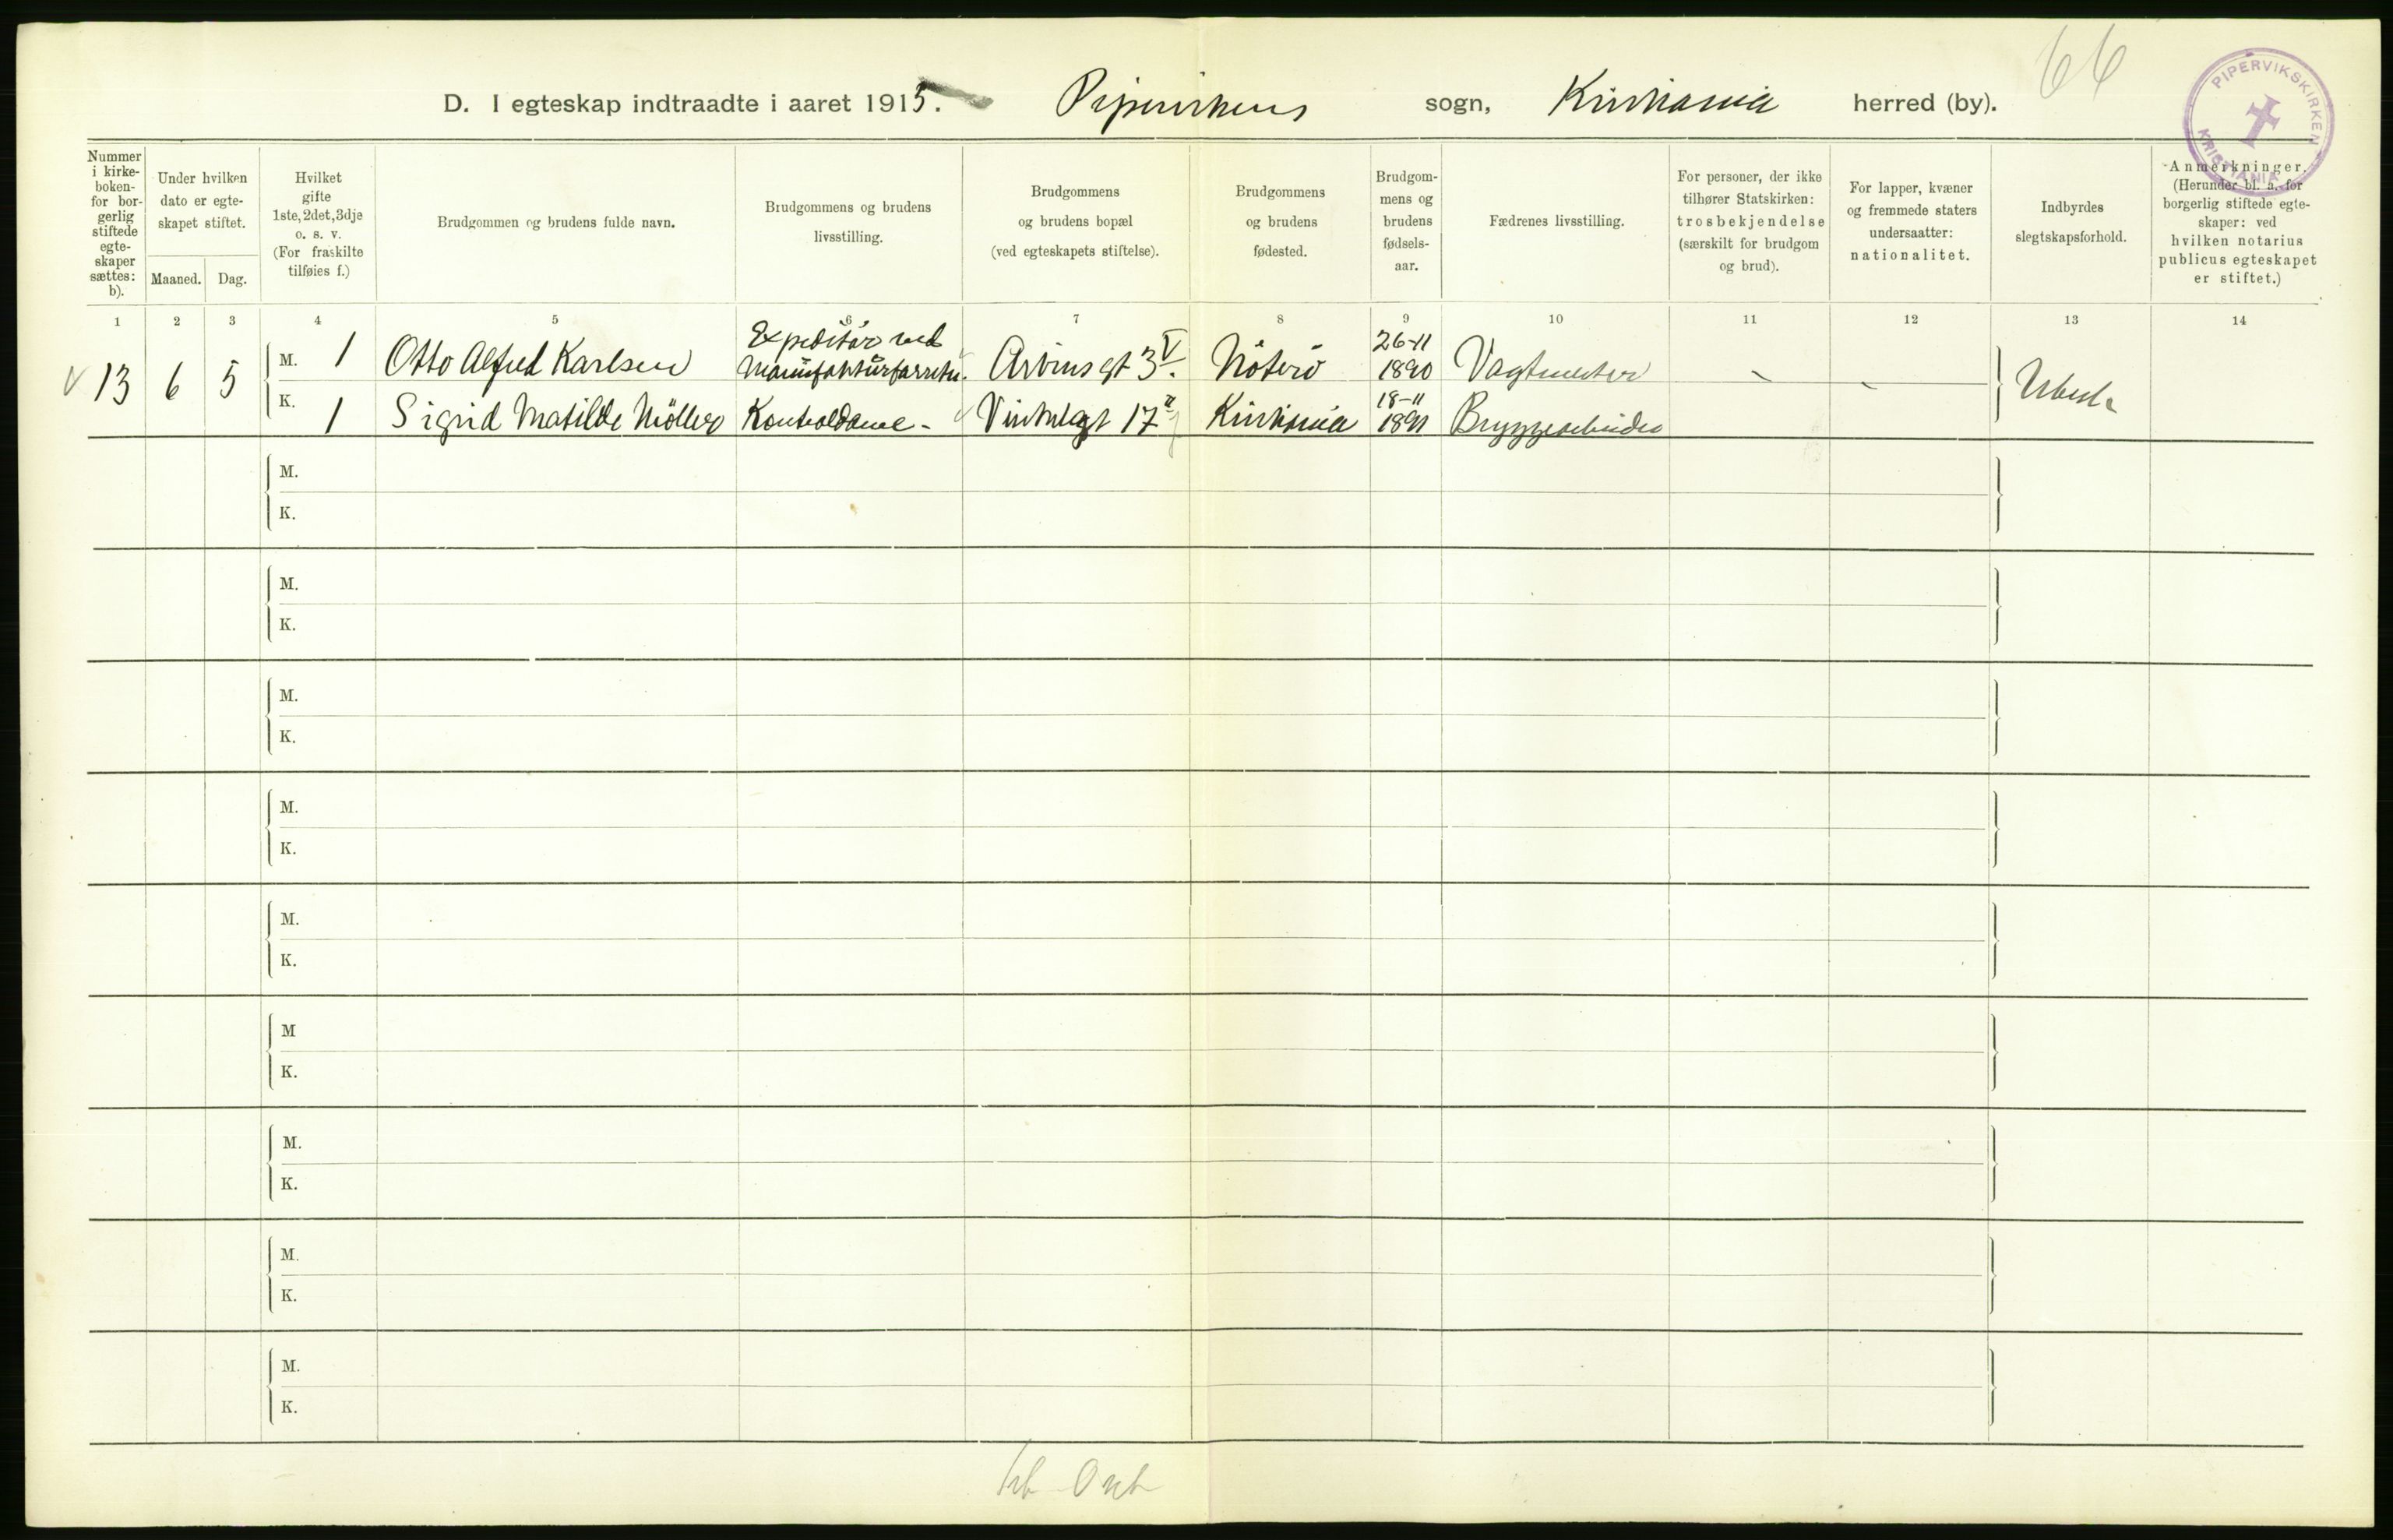 66
PIPERVIKSKIRKEN
KRISTIANIA
D. I egteskap indtraadte i aaret 1915. Pipervikens sogn, Kristiania herred (by).
Nummer
i kirke-
boken-
for bor-
gerlig
stiftede
egte-
skaper
sættes:
b).
Under hvilken
dato er egte-
skapet stiftet.
Maaned. Dag.
Hvilket
gifte
1ste, 2det, 3dje
o. s. v.
(For fraskilte
tilføies f.)
Brudgommen og brudens fulde navn.
Brudgommens og brudens
livsstilling.
Brudgommens
og brudens bopæl
(ved egteskapets stiftelse).
Brudgommens
og brudens
fødested.
Brudgom-
mens og
brudens
fødsels-
aar.
Fædrenes livsstilling.
For personer, der ikke
tilhører Statskirken:
trosbekjendelse
(særskilt for brudgom
og brud).
For lapper, kvæner
og fremmede staters
undersaatter:
nationalitet.
Indbyrdes
slegtskapsforhold.
Anmerkninger.
(Herunder bl. a. for
borgerlig stiftede egte-
skaper: ved
hvilken notarius
publicus egteskapet
er stiftet.)
1 2 3 4 5 6 7 8 9 10 11 12 13 14
13 6 5 M. 1 Otto Alfred Karlsen Expeditør ved Manufakturforretn. gt 3 V. Nöterö 26-11 1890 Vagtmester - -
K. 1 Sigrid Matilde Möller Kontoldame - 17 II Kristiania 18-11 1891 Bryggearbeider
Ubesl.
M.
K.
M.
K.
M.
K.
M.
K.
M.
K.
M
K.
M.
K.
M.
K.
M.
K.